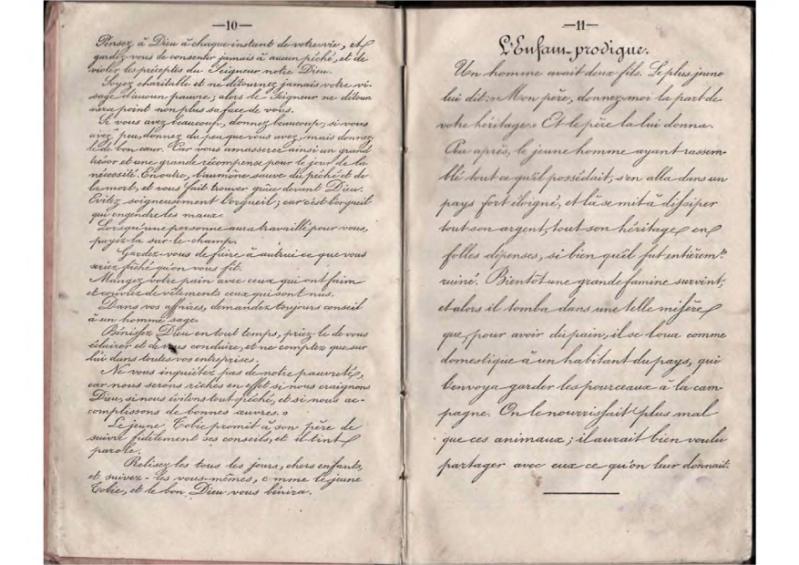 —10—
Pensez à Dieu à chaque instant de votre vie, et
gardez vous de consentir jamais à aucun péché, et de
violer les préceptes du Seigneur notre Dieu.
Soyez charitable et ne détournez jamais votre vi-
sage d'aucun pauvre; alors le Seigneur ne détour
nera point non plus sa face de vous.
Si vous avez beaucoup, donnez beaucoup; si vous
avez peu, donnez du peu que vous avez, mais donnez
le de bon cœur. Car vous amasserez ainsi un grand
trésor et une grande récompense pour le jour de la
nécessité. En outre, l'aumône sauve du péché et de
la mort, et vous fait trouver grâce devant Dieu.
Evitez soigneusement l'orgueil; car c'est l'orgueil
qui engendre les maux.
Lorsqu'une personne aura travaillé pour vous,
payez-la sur le champ.
Gardez-vous de faire à autrui ce que vous
seriez fâché qu'on vous fît.
Mangez votre pain avec ceux qui ont faim
et couvrez de vêtements ceux qui sont nus.
Dans vos affaires, demandez toujours conseil
à un homme sage.
Bénissez Dieu en tout temps, priez-le de vous
éclairer et de vous conduire, et ne comptez que sur
lui dans toutes vos entreprises.
Ne vous inquiétez pas de notre pauvreté,
car nous serons riches en effet si nous craignons
Dieu, si nous évitons tout péché, et si nous ac-
complissons de bonnes œuvres.»
Le jeune Tobie promit à son père de
suivre fidèlement ses conseils, et il tint
parole.
Relisez les tous les jours, chers enfants,
et suivez-les vous-mêmes, c mme le jeune
Tobie, et le bon Dieu vous bénira.
—11—
L'Enfant prodigue.
Un homme avait deux fils. Le plus jeune
lui dit: «Mon père, donnez-moi la part de
votre héritage.» Et le père la lui donna.
Peu après, le jeune homme ayant rassem-
blé tout ce qu'il possédait, s'en alla dans un
pays fort éloigné, et là se mit à dissiper
tout son argent, tout son héritage en
folles dépenses, si bien qu'il fut entièrem.t
ruiné. Bientôt une grande famine survint;
et alors il tomba dans une telle misère
que, pour avoir du pain, il se loua comme
domestique à un habitant du pays, qui
l'envoya garder les pourceaux à la cam-
pagne. On le nourrissait plus mal
que ces animaux; il aurait bien voulu
partager avec eux ce qu'on leur donnait.